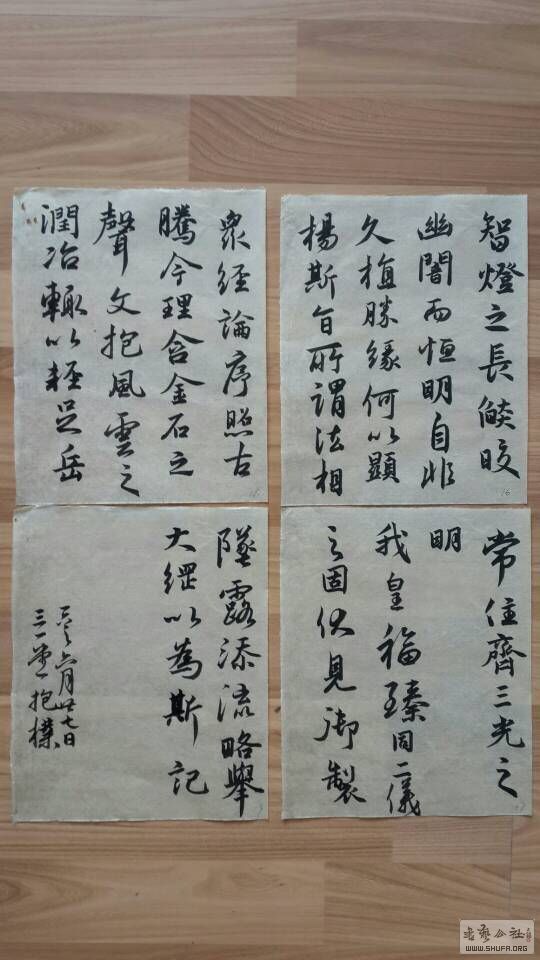 智燈之長燄皎
幽闇而恒明自非
久植勝緣何以顯
楊斯旨所謂法相
16
常住齊三光之
明
我皇福臻同二儀
之固伏見御製
衆經論序照古
騰今理含金石之
聲文抱風雲之
潤治輒以輕足岳
墜露添流略舉
大綱以為斯記
六月廿七日
三一堂抱樸
书艺公社
WWW.SHUFA.ORG